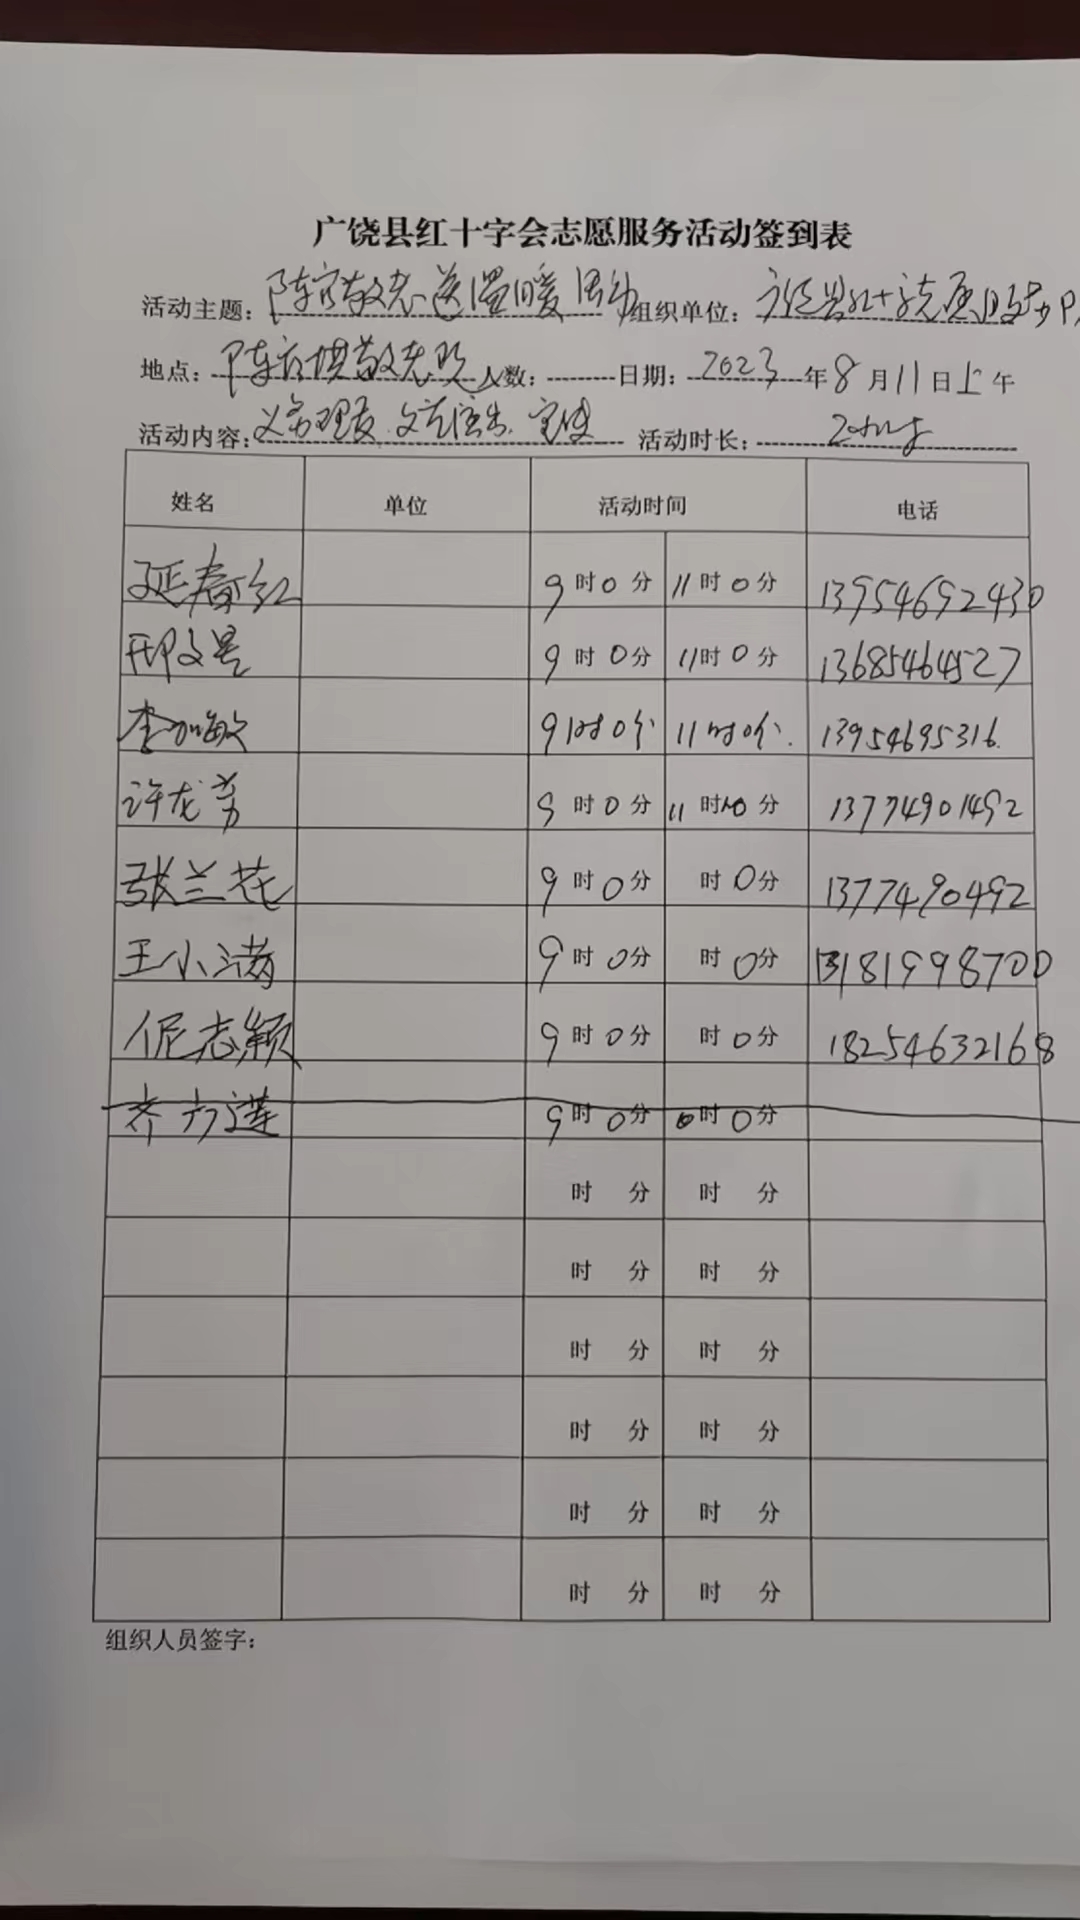 广饶县红十字会志愿服务活动签到表
活动主题: 陈官敬老送温暖活动 组织单位:
地点: 陈官镇敬老院 人数: 日期: 2023 年 8 月 11 日 上午
活动内容: 义务理发. 文艺演出. 活动时长: 2小时
姓名 单位 活动时间 电话
延春红 9 时 0 分 11 时 0 分 13954692430
邢文景 9 时 0 分 11 时 0 分 13685464527
李加敏 9 时 0 分 11 时 0 分. 13954695316.
许龙芳 9 时 0 分 11 时 0 分 13774901492
张兰花 9 时 0 分 时 0 分 1377490492
王小满 9 时 0 分 时 0 分 13181998700
志颖 9 时 0 分 时 0 分 18254632168
齐方莲 9 时 0 分 时 0 分
时 分 时 分
时 分 时 分
时 分 时 分
时 分 时 分
时 分 时 分
时 分 时 分
组织人员签字: